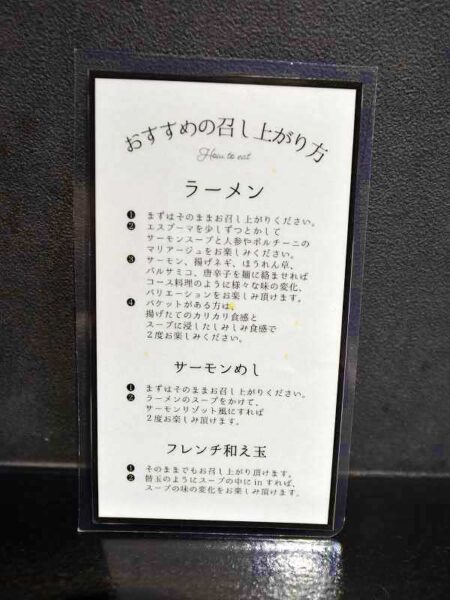 おすすめの召し上がり方
How to eat
ラーメン
❶ まずはそのままお召し上がりください。
❷ エスプーマを少しずつとかして
サーモンスープと人参やポルチーニの
マリアージュをお楽しみください。
❸ サーモン、揚げネギ、ほうれん草、
バルサミコ、唐辛子を麺に絡ませれば
コース料理のように様々な味の変化、
バリエーションをお楽しみ頂けます。
❹ バケットがある方は、
揚げたてのカリカリ食感と
スープに浸したしみしみ食感で
2度お楽しみください。
サーモンめし
❶ まずはそのままお召し上がりください。
❷ ラーメンのスープをかけて、
サーモンリゾット風にすれば
2度お楽しみ頂けます。
フレンチ和え玉
❶ そのままでもお召し上がり頂けます。
❷ 替玉のようにスープの中にinすれば、
スープの味の変化をお楽しみ頂けます。